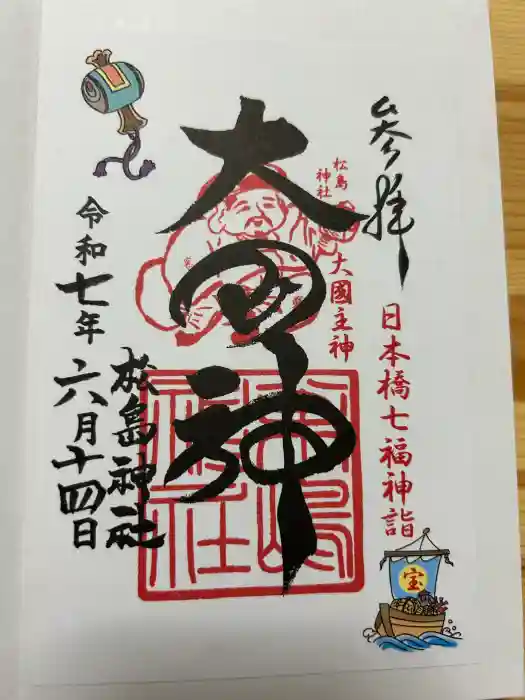 参拝
日本橋七福神詣
宝
松島
神社
大國主神
大国神
松島神社
令和七年
六月十四日